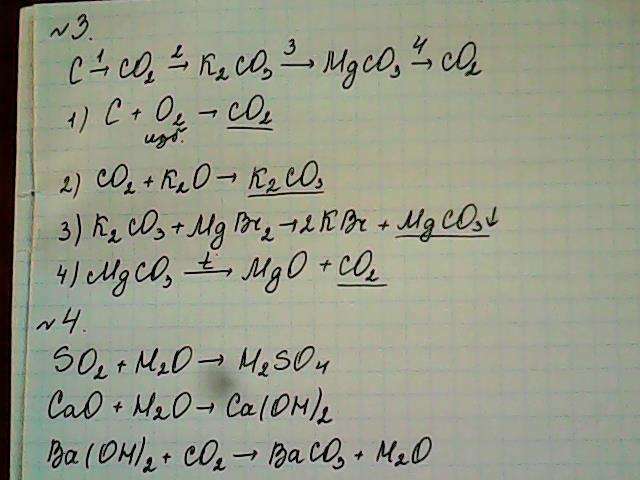 №3.
C →¹ CO₂ →² K₂CO₃ →³ MgCO₃ →⁴ CO₂
1) C + O₂ → CO₂
изб.
2) CO₂ + K₂O → K₂CO₃
3) K₂CO₃ + MgBr₂ → 2KBr + MgCO₃↓
4) MgCO₃ →ᵗ MgO + CO₂
№4.
SO₂ + H₂O → H₂SO₄
CaO + H₂O → Ca(OH)₂
Ba(OH)₂ + CO₂ → BaCO₃ + H₂O